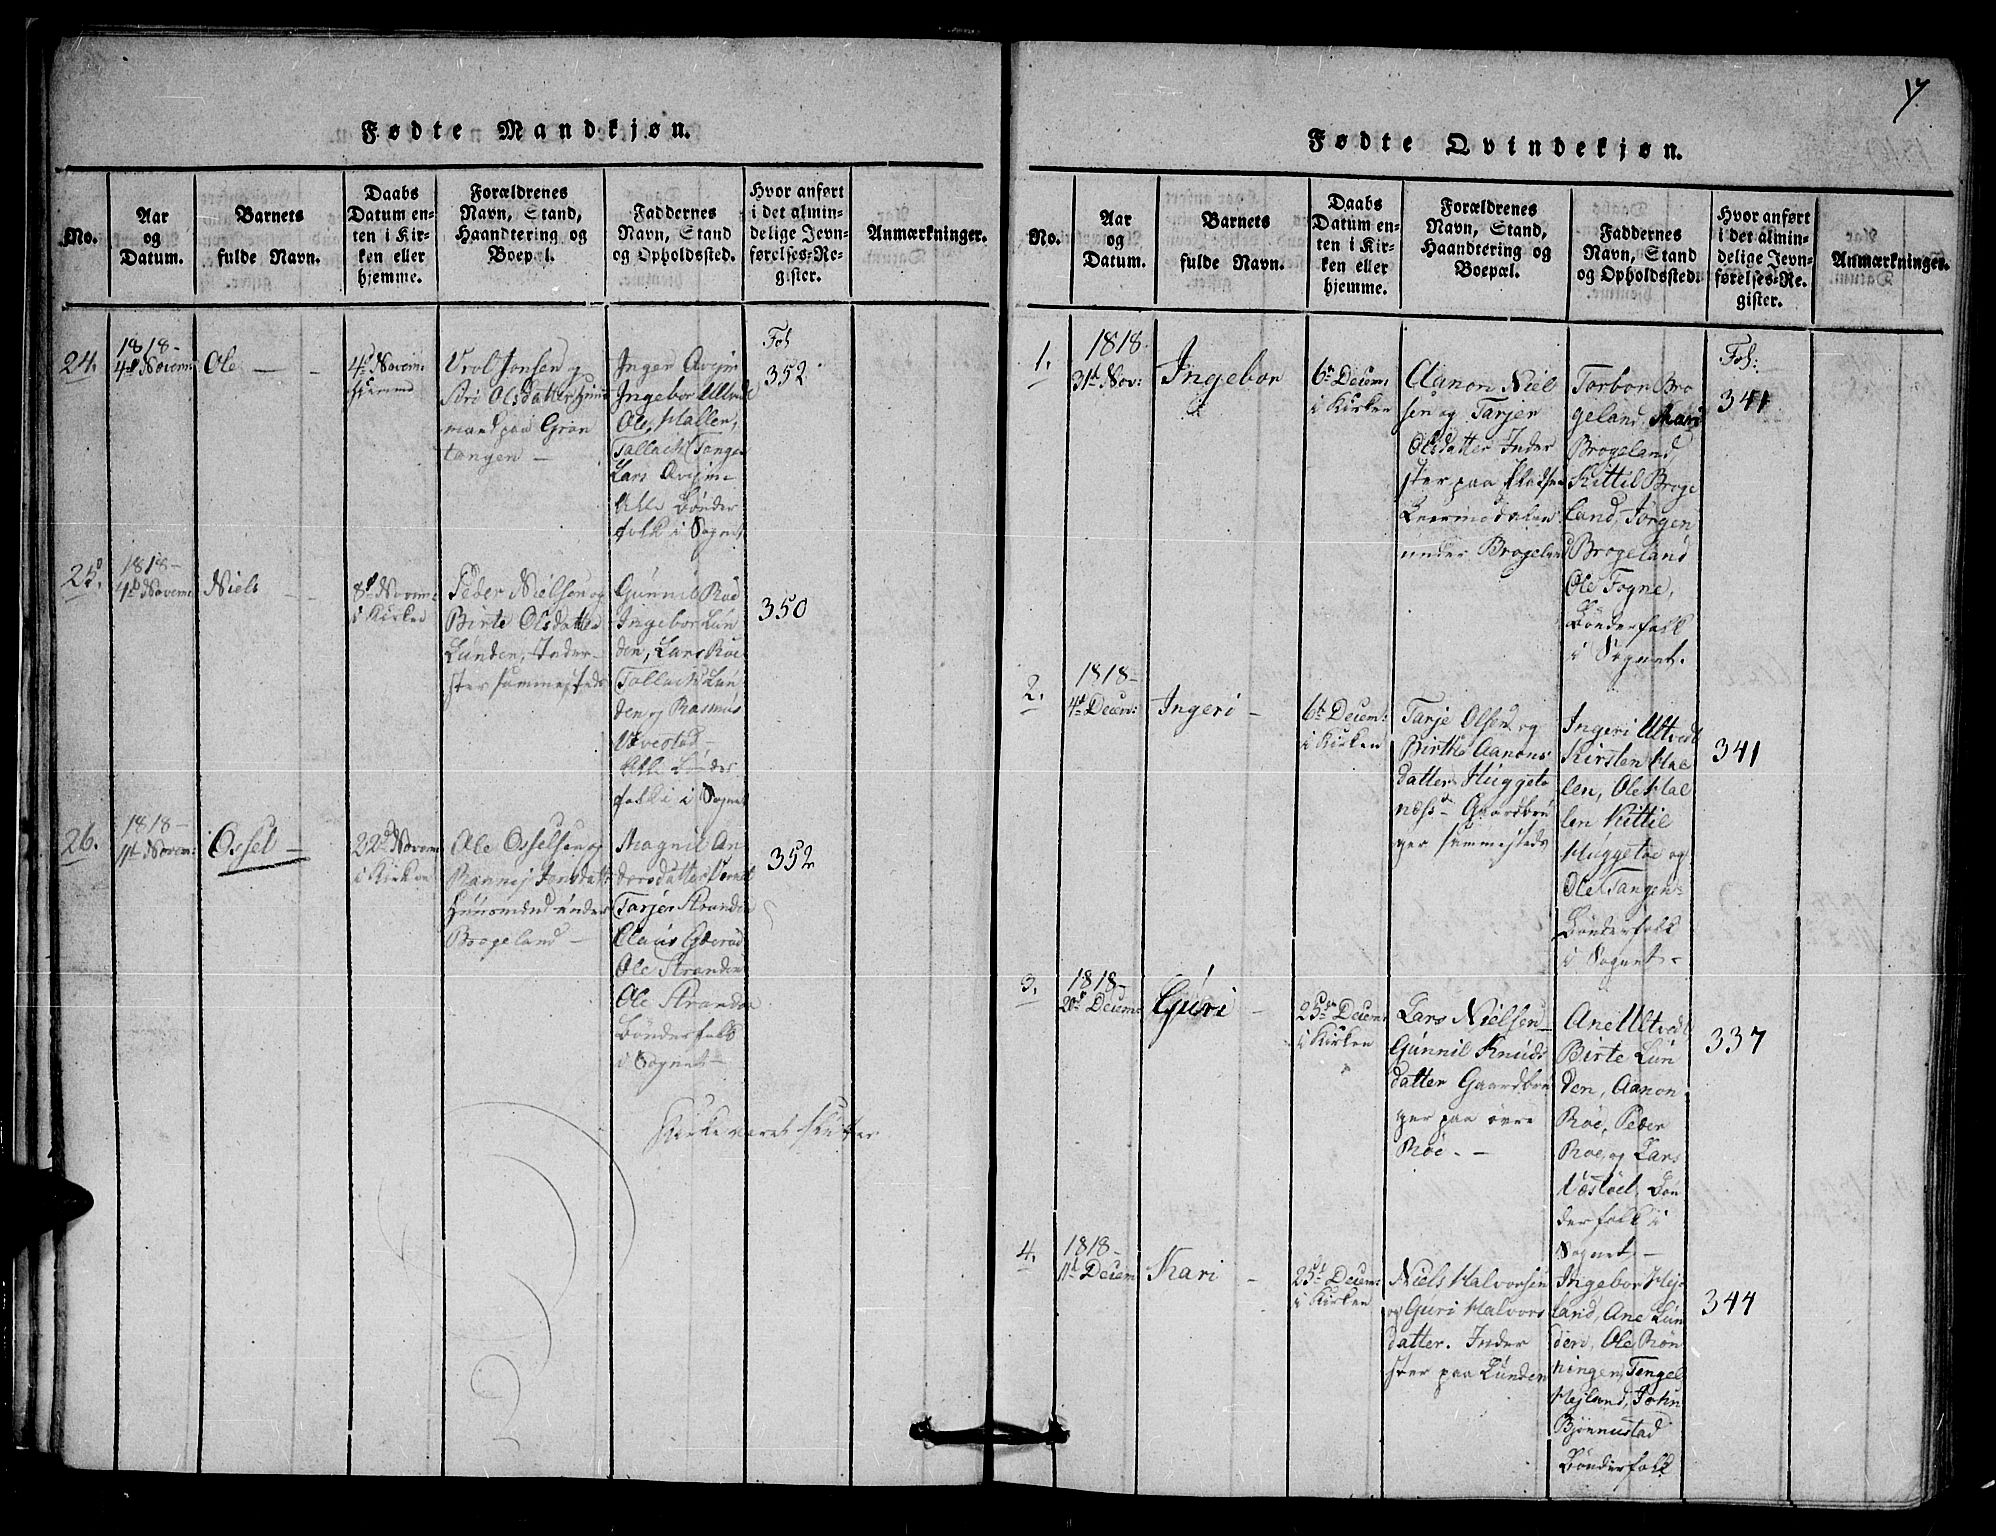 17
Fødte Mandkjøn.
No.
Aar
og
Datum.
Barnets
fulde Navn.
Daabs
Datum en-
ten i Kir-
ken eller
hjemme.
Forældrenes
Navn, Stand,
Haandtering og
Boepæl.
Faddernes
Navn, Stand
og Opholdssted.
Hvor anført
i det almin-
delige Jevn-
førelses-Re-
gister.
Anmærkninger.
24.
1818-
4de Novem:
Ole -
4de Novem:
hjemme
Jonsen og
Olsdatter
mand paa Gron
tangen -
Inger
Ingebor Ultvedt
Ole Hallen,
Tallach Tange
Lars
Alle Bønder
folk i Sognet
Fol
352
25.
1818-
4de Novem:
Niels
8de Novem:
i Kirken
Peder Nielsen og
Birte Olsdatter
Lunden, Inder-
ster sammesteds
Gunnil Roe
Ingebor Lun
den, Lars Roe
Tallach Lun
den og Rasmus
Vævestad
Alle Bønder
folk i Sognet
350
26.
1818-
11te Novem:
Ossel -
22de Novem:
i Kirken
Ole Osselsen og
Jonsdatt:
Huusmand under
Brogeland -
Magnil An
dersdatter
Tarjer Stranden
Claus
Ole Stranden
Ole Stranden
Bønderfolk
i Sognet -
352
Fødte Qvindekjøn.
No.
Aar
og
Datum.
Barnets
fulde Navn.
Daabs
Datum en-
ten i Kir-
ken eller
hjemme.
Forældrenes
Navn, Stand,
Haandtering og
Boepæl.
Faddernes
Navn, Stand
og Opholdssted.
Hvor anført
i det almin-
delige Jevn-
førelses-Re-
gister.
Anmærkninger.
1.
1818.
31te Nov:
Ingebor
6te Decem:
i Kirken
Aanon Niel
sen og Tarjer
Olsdatter Inder
ster paa Pladsen
under Brogeland
Torbor Bro
geland, Mari
Brogeland
Kittil Broge
land, Jørgen
Brogeland
Ole Fogne,
Bønderfolk
i Sognet.
Fol:
341
2.
1818-
4de Decem:
Ingeri -
6te Decem:
i Kirken
Tarje Olsen og
Birthe Aanons
datter Huggeto
næss - Gaardbru
ger sammesteds
Ingeri Ultvedt
Kirsten Hal
len, Ole Hal
len Kittil
Huggetoe og
Ole Tangen -
Bønderfolk
i Sognet -
341
3.
1818-
20de Decem:
Guri -
25de Decem:
i Kirken
Lars Nielsen
Gunnil Knuds
datter Gaardbru
ger paa øvre
Roe. -
Ane Ultvedt
Birte Lun
den, Aanon
Roe, Peder
Roe, og Lars
Væstøel, Bøn
derfolk i
Sognet -
337
4.
1818-
11te Decem:
Kari -
25de Decem:
i Kirken
Niels Halvorsen
og Guri Halvors
datter. Inder
ster paa Lunden
Ingebor Hej
land, Ane Lun
den, Ole Røn
ningen, Tengel
Hejland, John
Bjønnestad
Bønderfolk
344